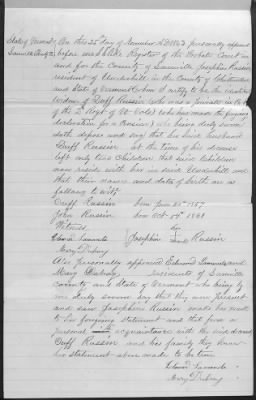 State of Vermont } On this 25th day of November A.D. 1863 personally appeared
Lamoille County SS } before me the Register of the Probate Court in
and for the County of Lamoille Josephine Russin
resident of Underhill in the County of Chittenden
and State of Vermont whom I certify to be the
widow of Duff Russin who was a private in Co
of the 2 Regt of Vt Vols who has made the foregoing
declaration for a Pension who being duly sworn
doth depose and say that her said husband
Duff Russin at the time of his decease
left only two Children that said Children
now reside with her in said Underhill and
that their names and date of birth are as
follows to wit
Duff Russin born June 25th 1857
John Russin born Oct 14th 1861
Witness her
Edward Josephine Russin
Mary
mark
Also personally appeared Edward and
Mary residents of Lamoille
County and State of Vermont who being by
me duly sworn say that they were present
and saw Josephine Russin make her mark
to the foregoing statement and that from a
personal acquaintance with the said deceased
Duff Russin and his family they know
her statement above made to be true
Edward
Mary